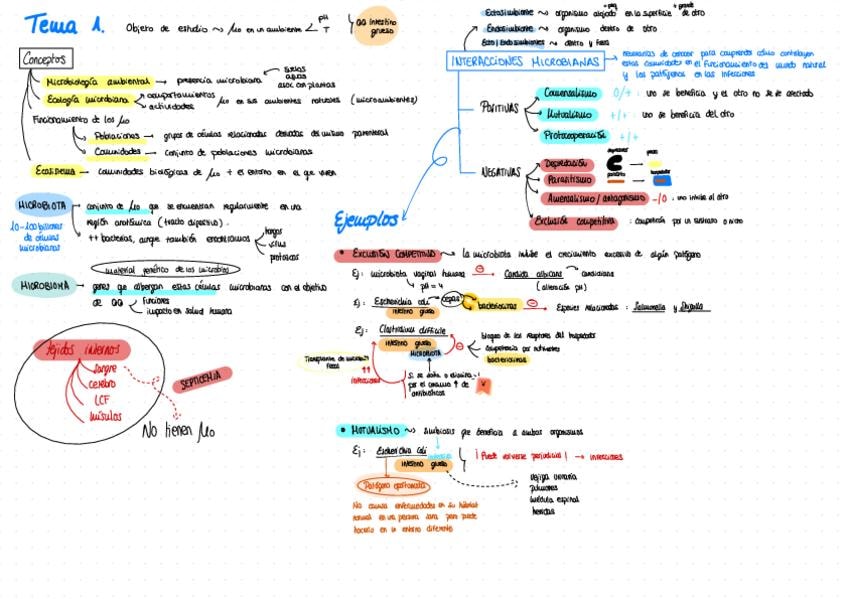 Tema 1.
Objeto de estudio ~> μo en un ambiente < pH T
intestino grueso
Conceptos
Microbiología ambiental → presencia microbiana
suelos
aguas
asoc con plantas
Ecología microbiana
comportamientos
actividades
μo en sus ambientes naturales (microambientes)
Funcionamiento de los μo
Poblaciones → grupos de células relacionadas derivadas del mismo parenteral
Comunidades → conjunto de poblaciones microbianas
Ecosistema → comunidades biológicas de μo + el entorno en el que viven
MICROBIOTA → conjunto de μo que se encuentran regularmente en una
región anatómica (tracto digestivo).
10-100 billones
de células
microbianas
++ bacterias, aunque también encontramos
hongos
virus
protozoos
material genético de los microbios
MICROBIOMA → genes que albergan estas células microbianas con el objetivo
de
Funciones
impacto en salud humana
tejidos internos
sangre
cerebro
LCF
músculos
SEPTICEMIA
No tienen μo
Ectosimbionte ~> organismo alojado en la superficie de otro
+ peq
+ grande
Endosimbionte ~> organismo dentro de otro
Ecto/Endosimbiontes ~> dentro y fuera
INTERACCIONES MICROBIANAS
necesarias de conocer para comprender cómo contribuyen
estas comunidades en el funcionamiento del mundo natural
y los patógenos en las infecciones
POSITIVAS
Comensalismo 0/+ : uno se beneficia y el otro no se ve afectado
Mutualismo +/+ : uno se beneficia del otro
Protocooperación +/+
NEGATIVAS
Depredación
depredador
presa
Parasitismo
parásito
hospedador
Amensalismo / antagonismo -/0 : uno inhibe al otro
Exclusión competitiva : competición por un sustrato o nicho
Ejemplos
• EXCLUSIÓN COMPETITIVA ~> la microbiota inhibe el crecimiento excesivo de algún patógeno
Ej: microbiota vaginal humana ⊖ → Candida albicans candidiasis
pH = 4
(alteración pH)
Ej: Escherichia coli cepas bacteriocinas ⊖ → Especies relacionadas : Salmonella y Shigella
intestino grueso
Ej: Clostridium difficile
intestino grueso
MICROBIOTA
⊖
bloqueo de los receptores del hospedador
competencia por nutrientes
bacteriocinas
Transplante de microbiota
fecal
↑↑
infecciones
Si se daña o elimina
por el consumo ↑ de
antibióticos
• MUTUALISMO ~> Simbiosis que beneficia a ambos organismos
Ej: Escherichia coli
intestino grueso
¡Puede volverse perjudicial! → infecciones
Patógeno oportunista
vejiga urinaria
pulmones
médula espinal
heridas
No causa enfermedades en su hábitat
normal en una persona sana pero puede
hacerlo en un entorno diferente